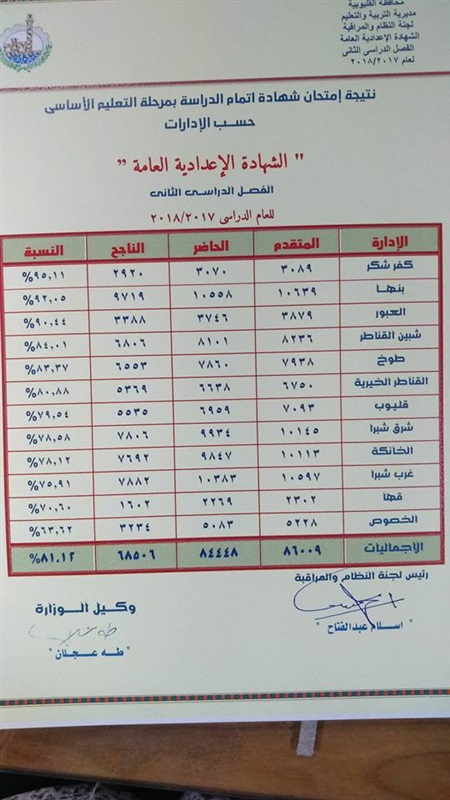 محافظة القليوبية
مديرية التربية والتعليم
لجنة النظام والمراقبة
الشهادة الإعدادية العامة
الفصل الدراسى الثانى
لعام ٢٠١٨/٢٠١٧
نتيجة إمتحان شهادة اتمام الدراسة بمرحلة التعليم الأساسى
حسب الإدارات
" الشهادة الإعدادية العامة "
الفصل الدراسى الثانى
للعام الدراسى ٢٠١٨/٢٠١٧
الإدارة المتقدم الحاضر الناجح النسبة
كفر شكر ٣٠٨٩ ٣٠٧٠ ٢٩٢٠ %٩٥,١١
بنها ١٠٦٣٩ ١٠٥٥٨ ٩٧١٩ %٩٢,٠٥
العبور ٣٨٧٩ ٣٧٤٦ ٣٣٨٨ %٩٠,٤٤
شبين القناطر ٨٢٣٦ ٨١٠١ ٦٨٠٦ %٨٤,٠١
طوخ ٧٩٣٨ ٧٨٦٠ ٦٥٥٣ %٨٣,٣٧
القناطر الخيرية ٦٧٥٠ ٦٦٣٨ ٥٣٦٩ %٨٠,٨٨
قليوب ٧٠٩٣ ٦٩٥٩ ٥٥٣٥ %٧٩,٥٤
شرق شبرا ١٠١٤٥ ٩٩٣٤ ٧٨٠٦ %٧٨,٥٨
الخانكة ١٠١١٣ ٩٨٤٧ ٧٦٩٢ %٧٨,١٢
غرب شبرا ١٠٥٩٧ ١٠٣٨٣ ٧٨٨٢ %٧٥,٩١
قها ٢٣٠٢ ٢٢٦٩ ١٦٠٢ %٧٠,٦٠
الخصوص ٥٢٢٨ ٥٠٨٣ ٣٢٣٤ %٦٣,٦٢
الأجماليات ٨٦٠٠٩ ٨٤٤٤٨ ٦٨٥٠٦ %٨١,١٢
رئيس لجنة النظام والمراقبة
وكيل الوزارة
" اسلام عبدالفتاح "
" طه عجلان "